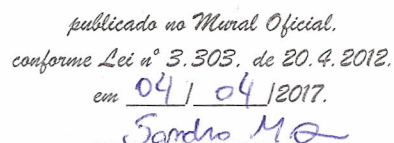 publicado no Mural Oficial.
conforme Lei nº 3.303. de 20.4.2012.
em 04/04/2017.
Sandro